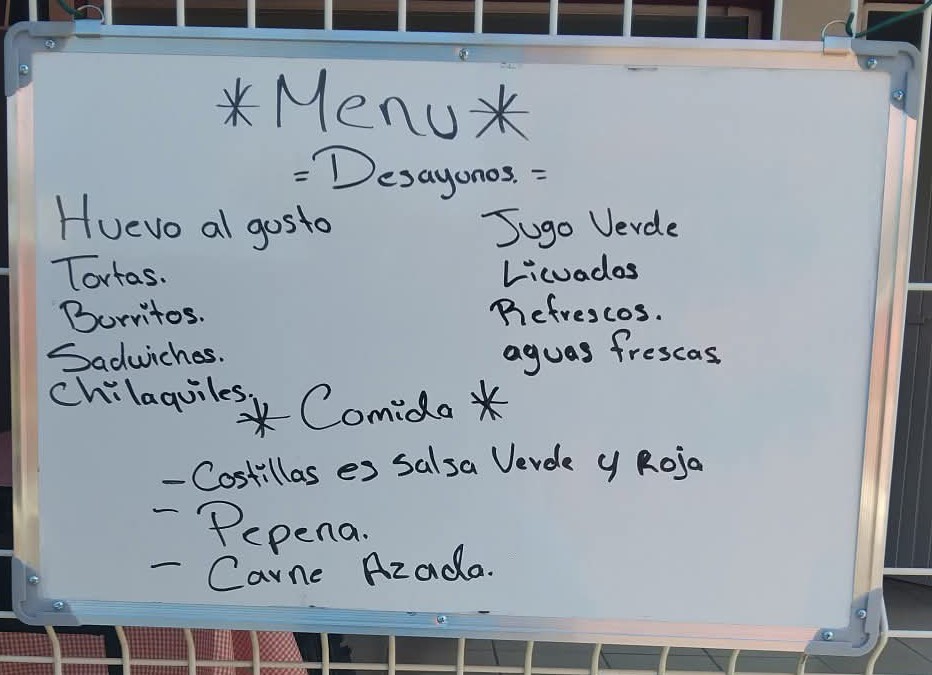 *Menu*
= Desayunos. =
Huevo al gusto
Tortas.
Burritos.
Sadwiches.
Chilaquiles.
Jugo Verde
Licuados
Refrescos.
aguas frescas
* Comida *
- Costillas es Salsa Verde y Roja
- Pepena.
- Carne Azada.